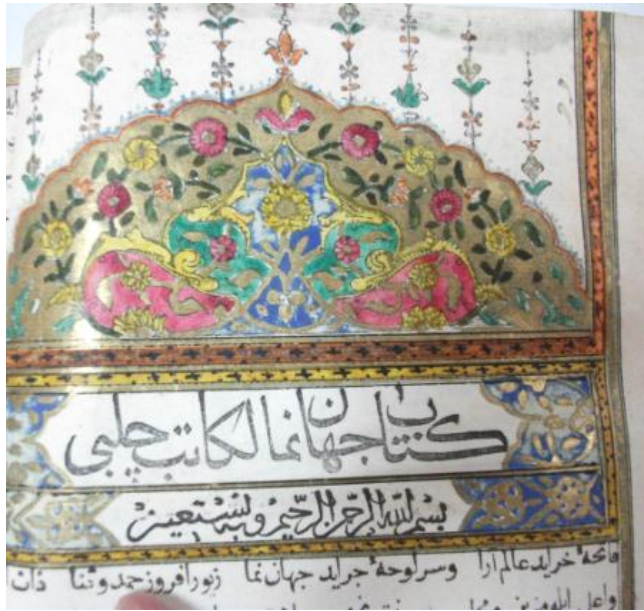 كتاب جهان نما لكاتب چلبی
بسم الله الرحمن الرحيم وبه نستعين
فاتحهٔ خرید عالم آرا وسرلوحهٔ جراید جهان نما زیور افروز حمد وثنا ذات